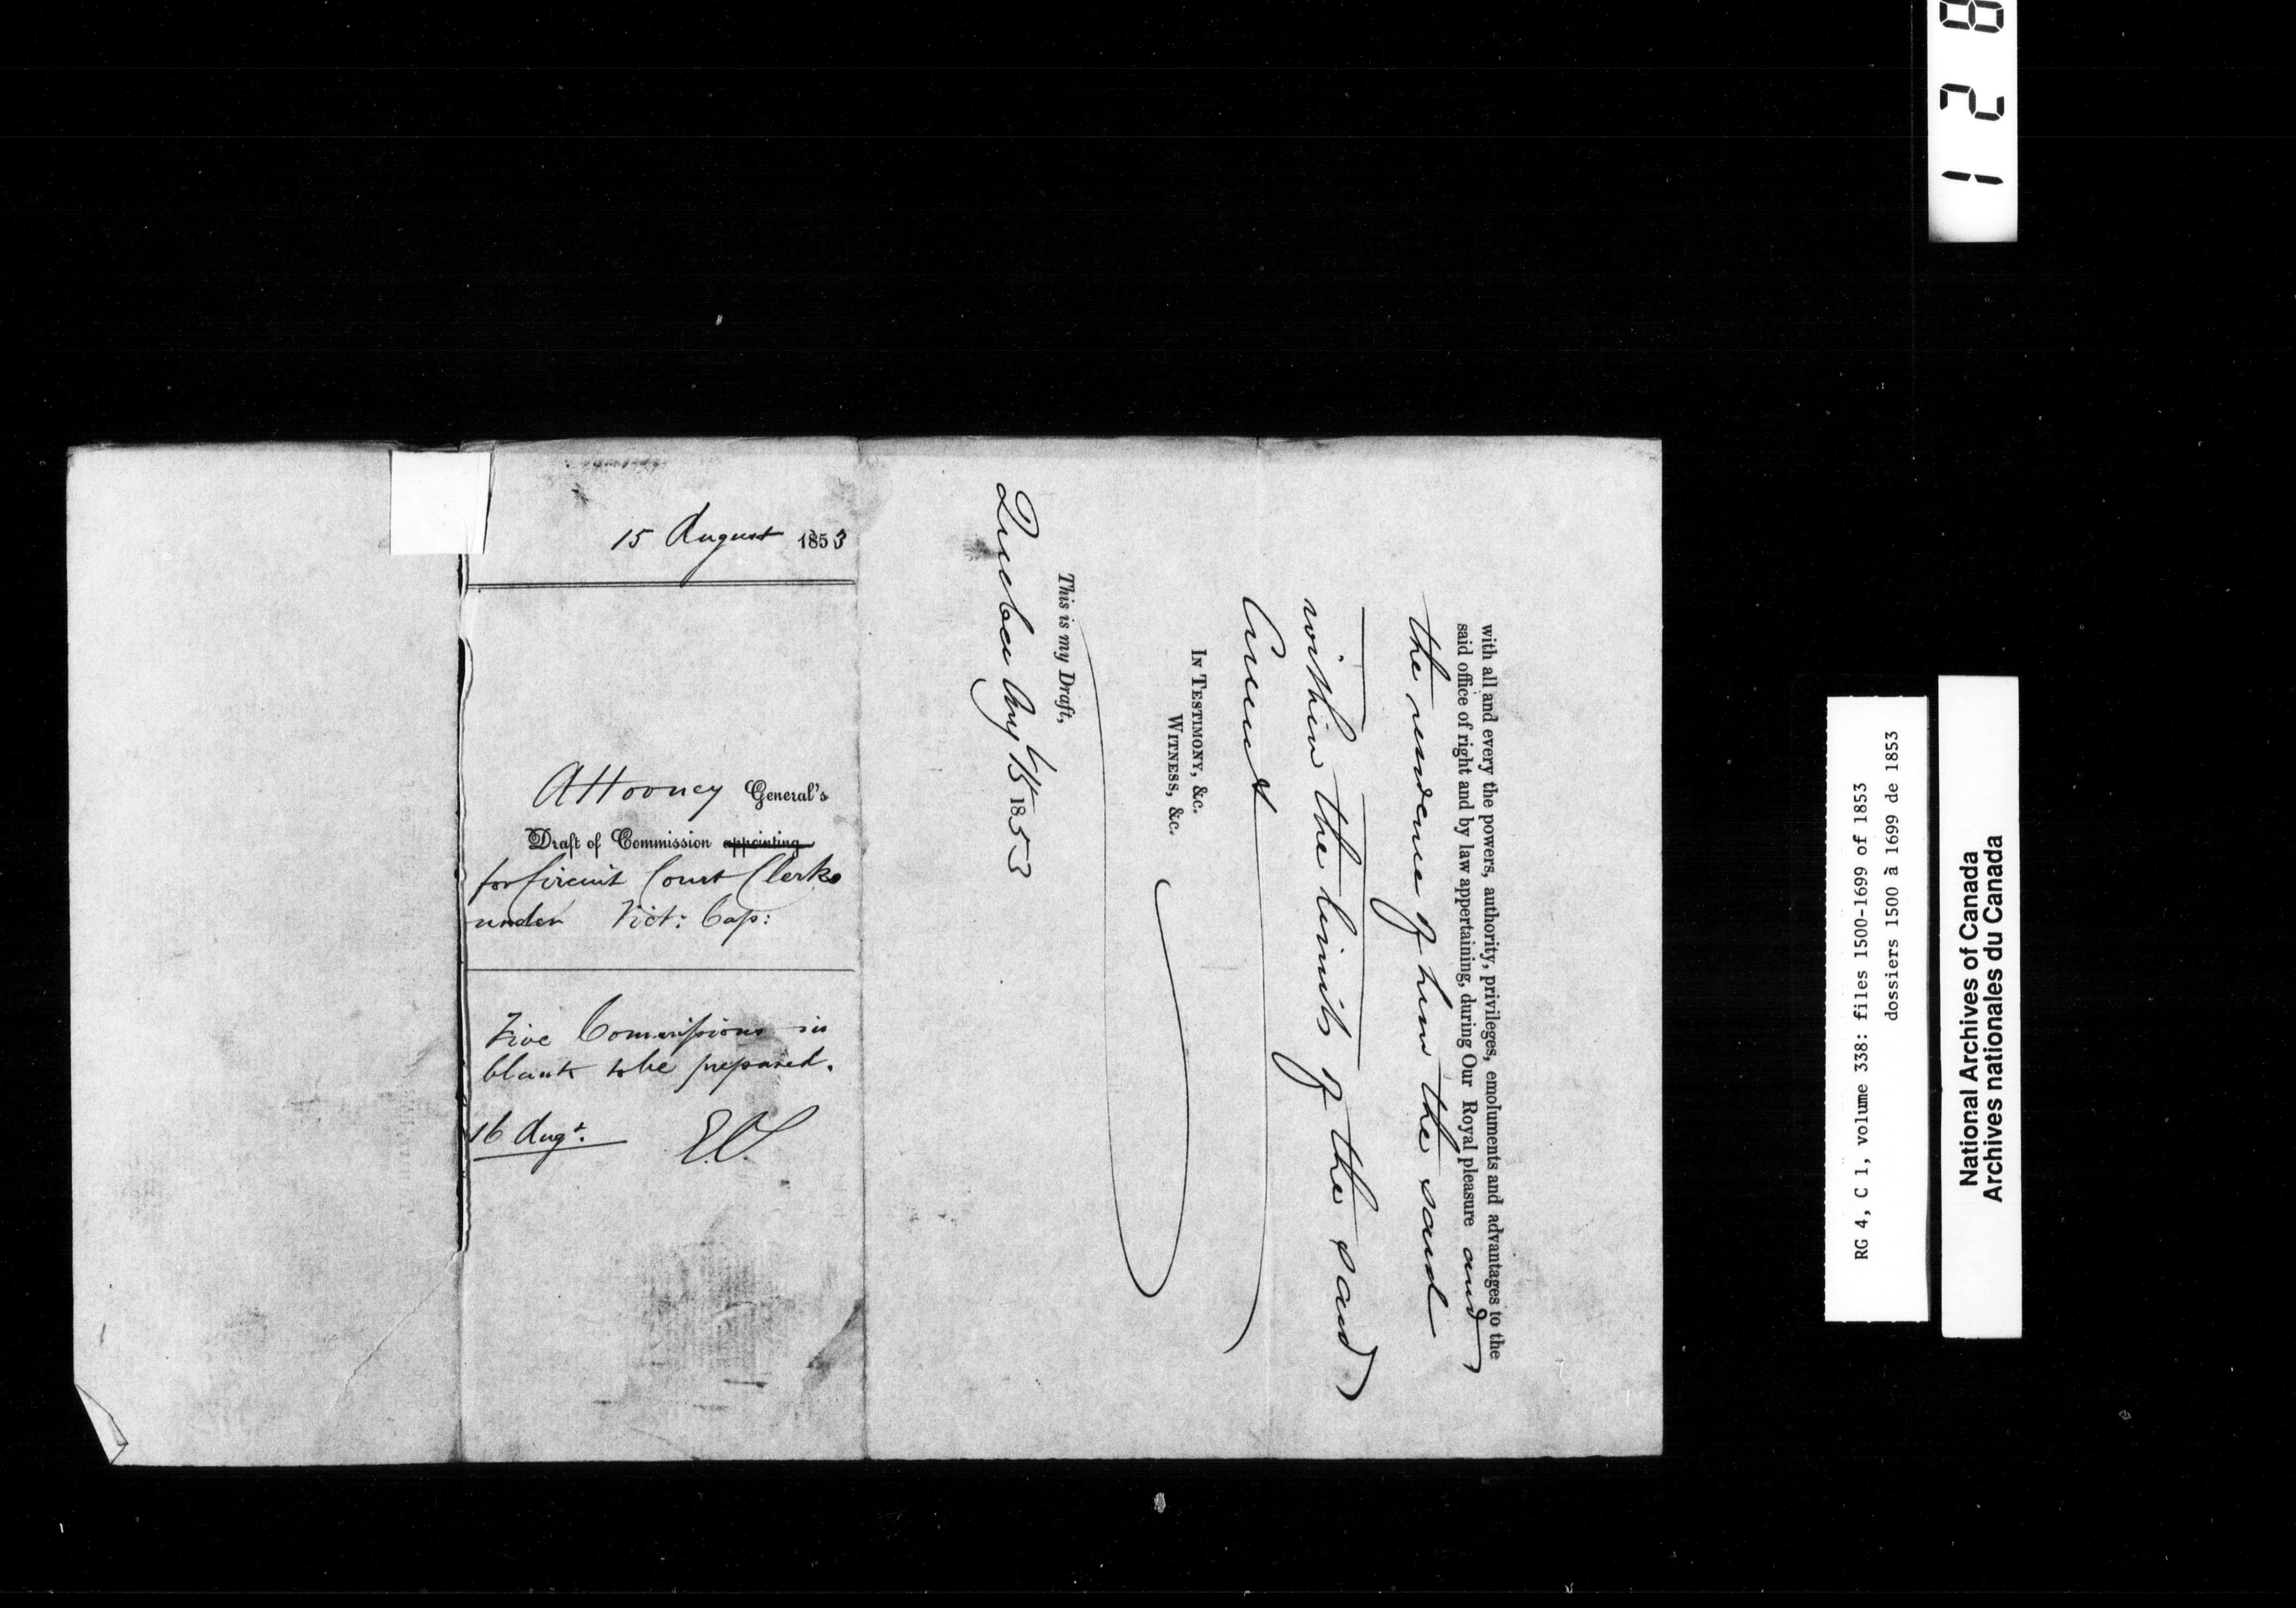 15 August 1853
Attorney General's
Draft of Commission appointing
for Circuit Court Clerks
under Vict: Cap:
Five Commissions in
blank to be prepared.
16 Augt.
with all and every the powers, authority, privileges, emoluments and advantages to the
said office of right and by law appertaining, during Our Royal pleasure and
the residence of him the said
within the limits of the said
Circuit
In Testimony, &c.
Witness, &c.
This is my Draft,
Quebec Aug 15 1853
128
RG 4, C 1, volume 338: files 1500-1699 of 1853
dossiers 1500 à 1699 de 1853
National Archives of Canada
Archives nationales du Canada